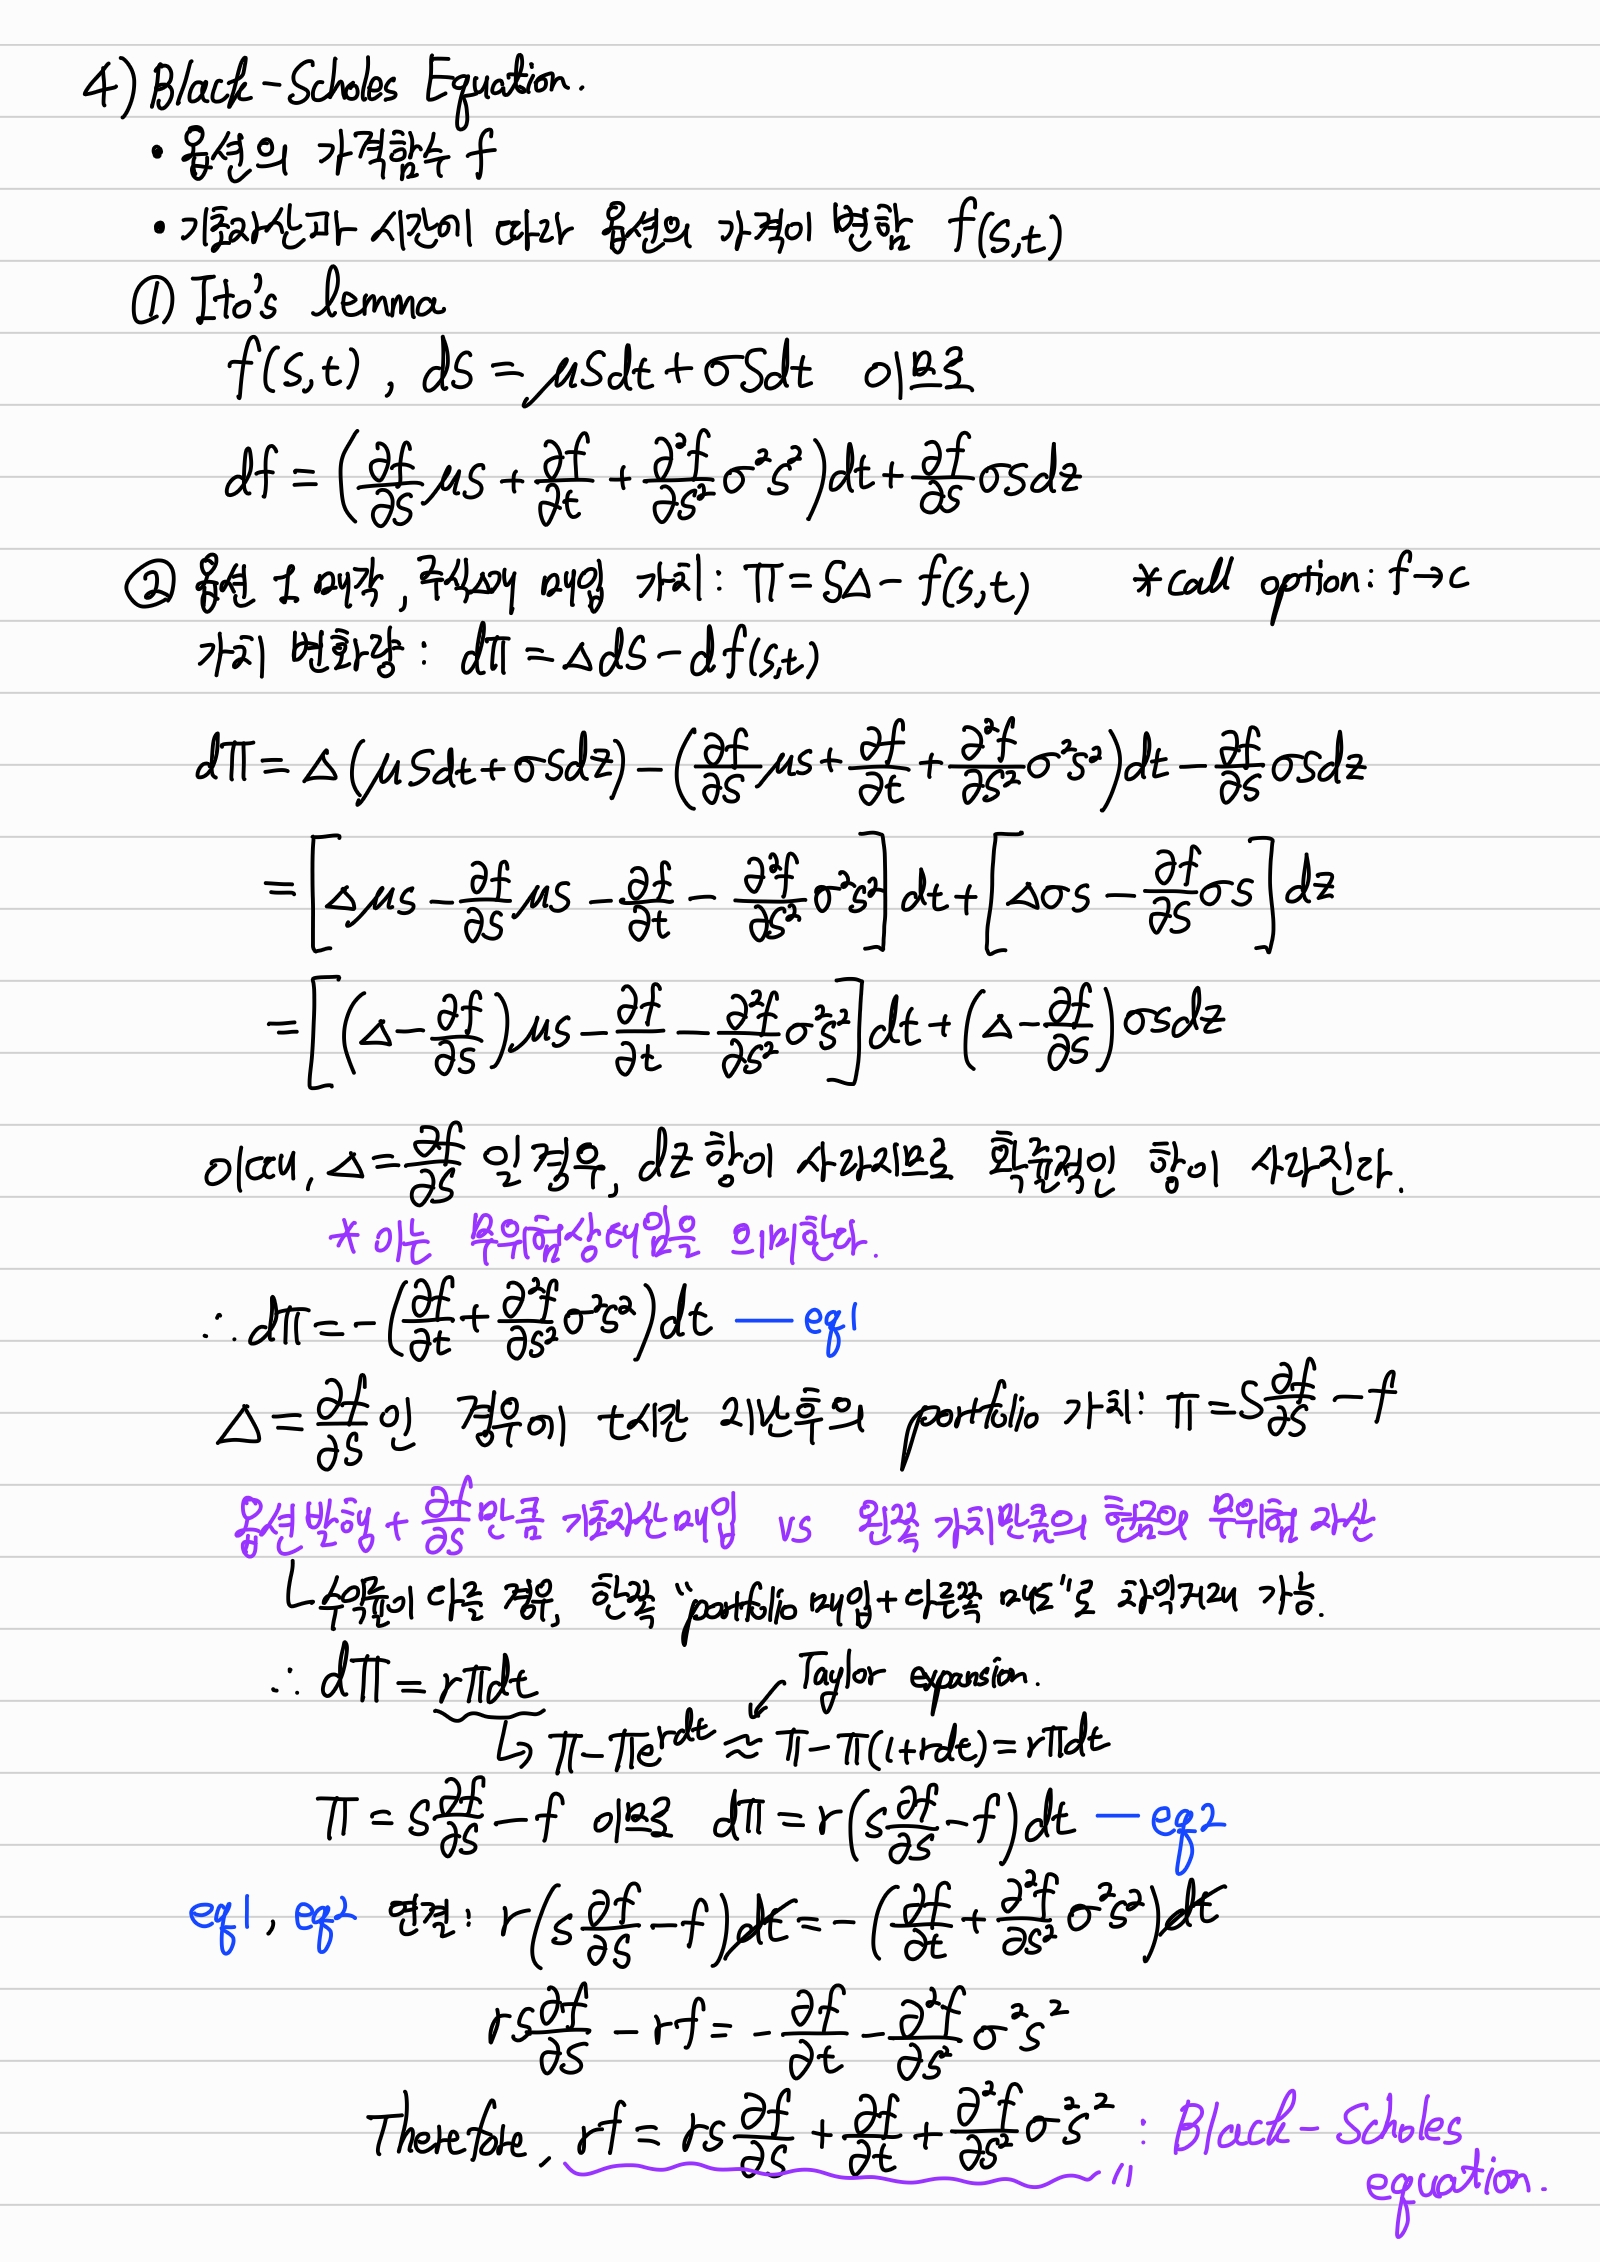 4) Black-Scholes Equation.
• 옵션의 가격함수 f
• 기초자산과 시간에 따라 옵션의 가격이 변함 f(s,t)
① Ito's lemma
f(s,t) , dS = μSdt + σSdt 이므로
df = (∂f/∂s μs + ∂f/∂t + ∂²f/∂s² σ²s²)dt + ∂f/∂s σsdz
② 옵션 1 매각, 주식△개 매입 가치: π = S△ - f(s,t) *call option: f→c
가치 변화량 : dπ = △ds - df(s,t)
dπ = △(μSdt + σsdz) - (∂f/∂s μs + ∂f/∂t + ∂²f/∂s² σ²s²)dt - ∂f/∂s σsdz
= [△μs - ∂f/∂s μs - ∂f/∂t - ∂²f/∂s² σ²s²] dt + [△σs - ∂f/∂s σs] dz
= [(△ - ∂f/∂s)μs - ∂f/∂t - ∂²f/∂s² σ²s²] dt + (△ - ∂f/∂s) σsdz
이때, △ = ∂f/∂s 일 경우, dz 항이 사라지므로 확률적인 항이 사라진다.
* 이는 무위험상태임을 의미한다.
∴ dπ = -(∂f/∂t + ∂²f/∂s² σ²s²)dt — eq1
△ = ∂f/∂s 인 경우에 t시간 지난후의 portfolio 가치: π = S ∂f/∂s - f
옵션발행 + ∂f/∂s 만큼 기초자산 매입 vs 왼쪽 가치만큼의 현금의 무위험 자산
수익률이 다를 경우, 한쪽 "portfolio 매입 + 다른쪽 매도"로 차익거래 가능.
∴ dπ = rπdt Taylor expansion.
↳ π - πe^{rdt} ≈ π - π(1+rdt) = rπdt
π = s ∂f/∂s - f 이므로 dπ = r(s ∂f/∂s - f)dt — eq2
eq1, eq2 연결: r(s ∂f/∂s - f)dt = -(∂f/∂t + ∂²f/∂s² σ²s²)dt
rs ∂f/∂s - rf = - ∂f/∂t - ∂²f/∂s² σ²s²
Therefore, rf = rs ∂f/∂s + ∂f/∂t + ∂²f/∂s² σ²s² : Black-Scholes
equation.